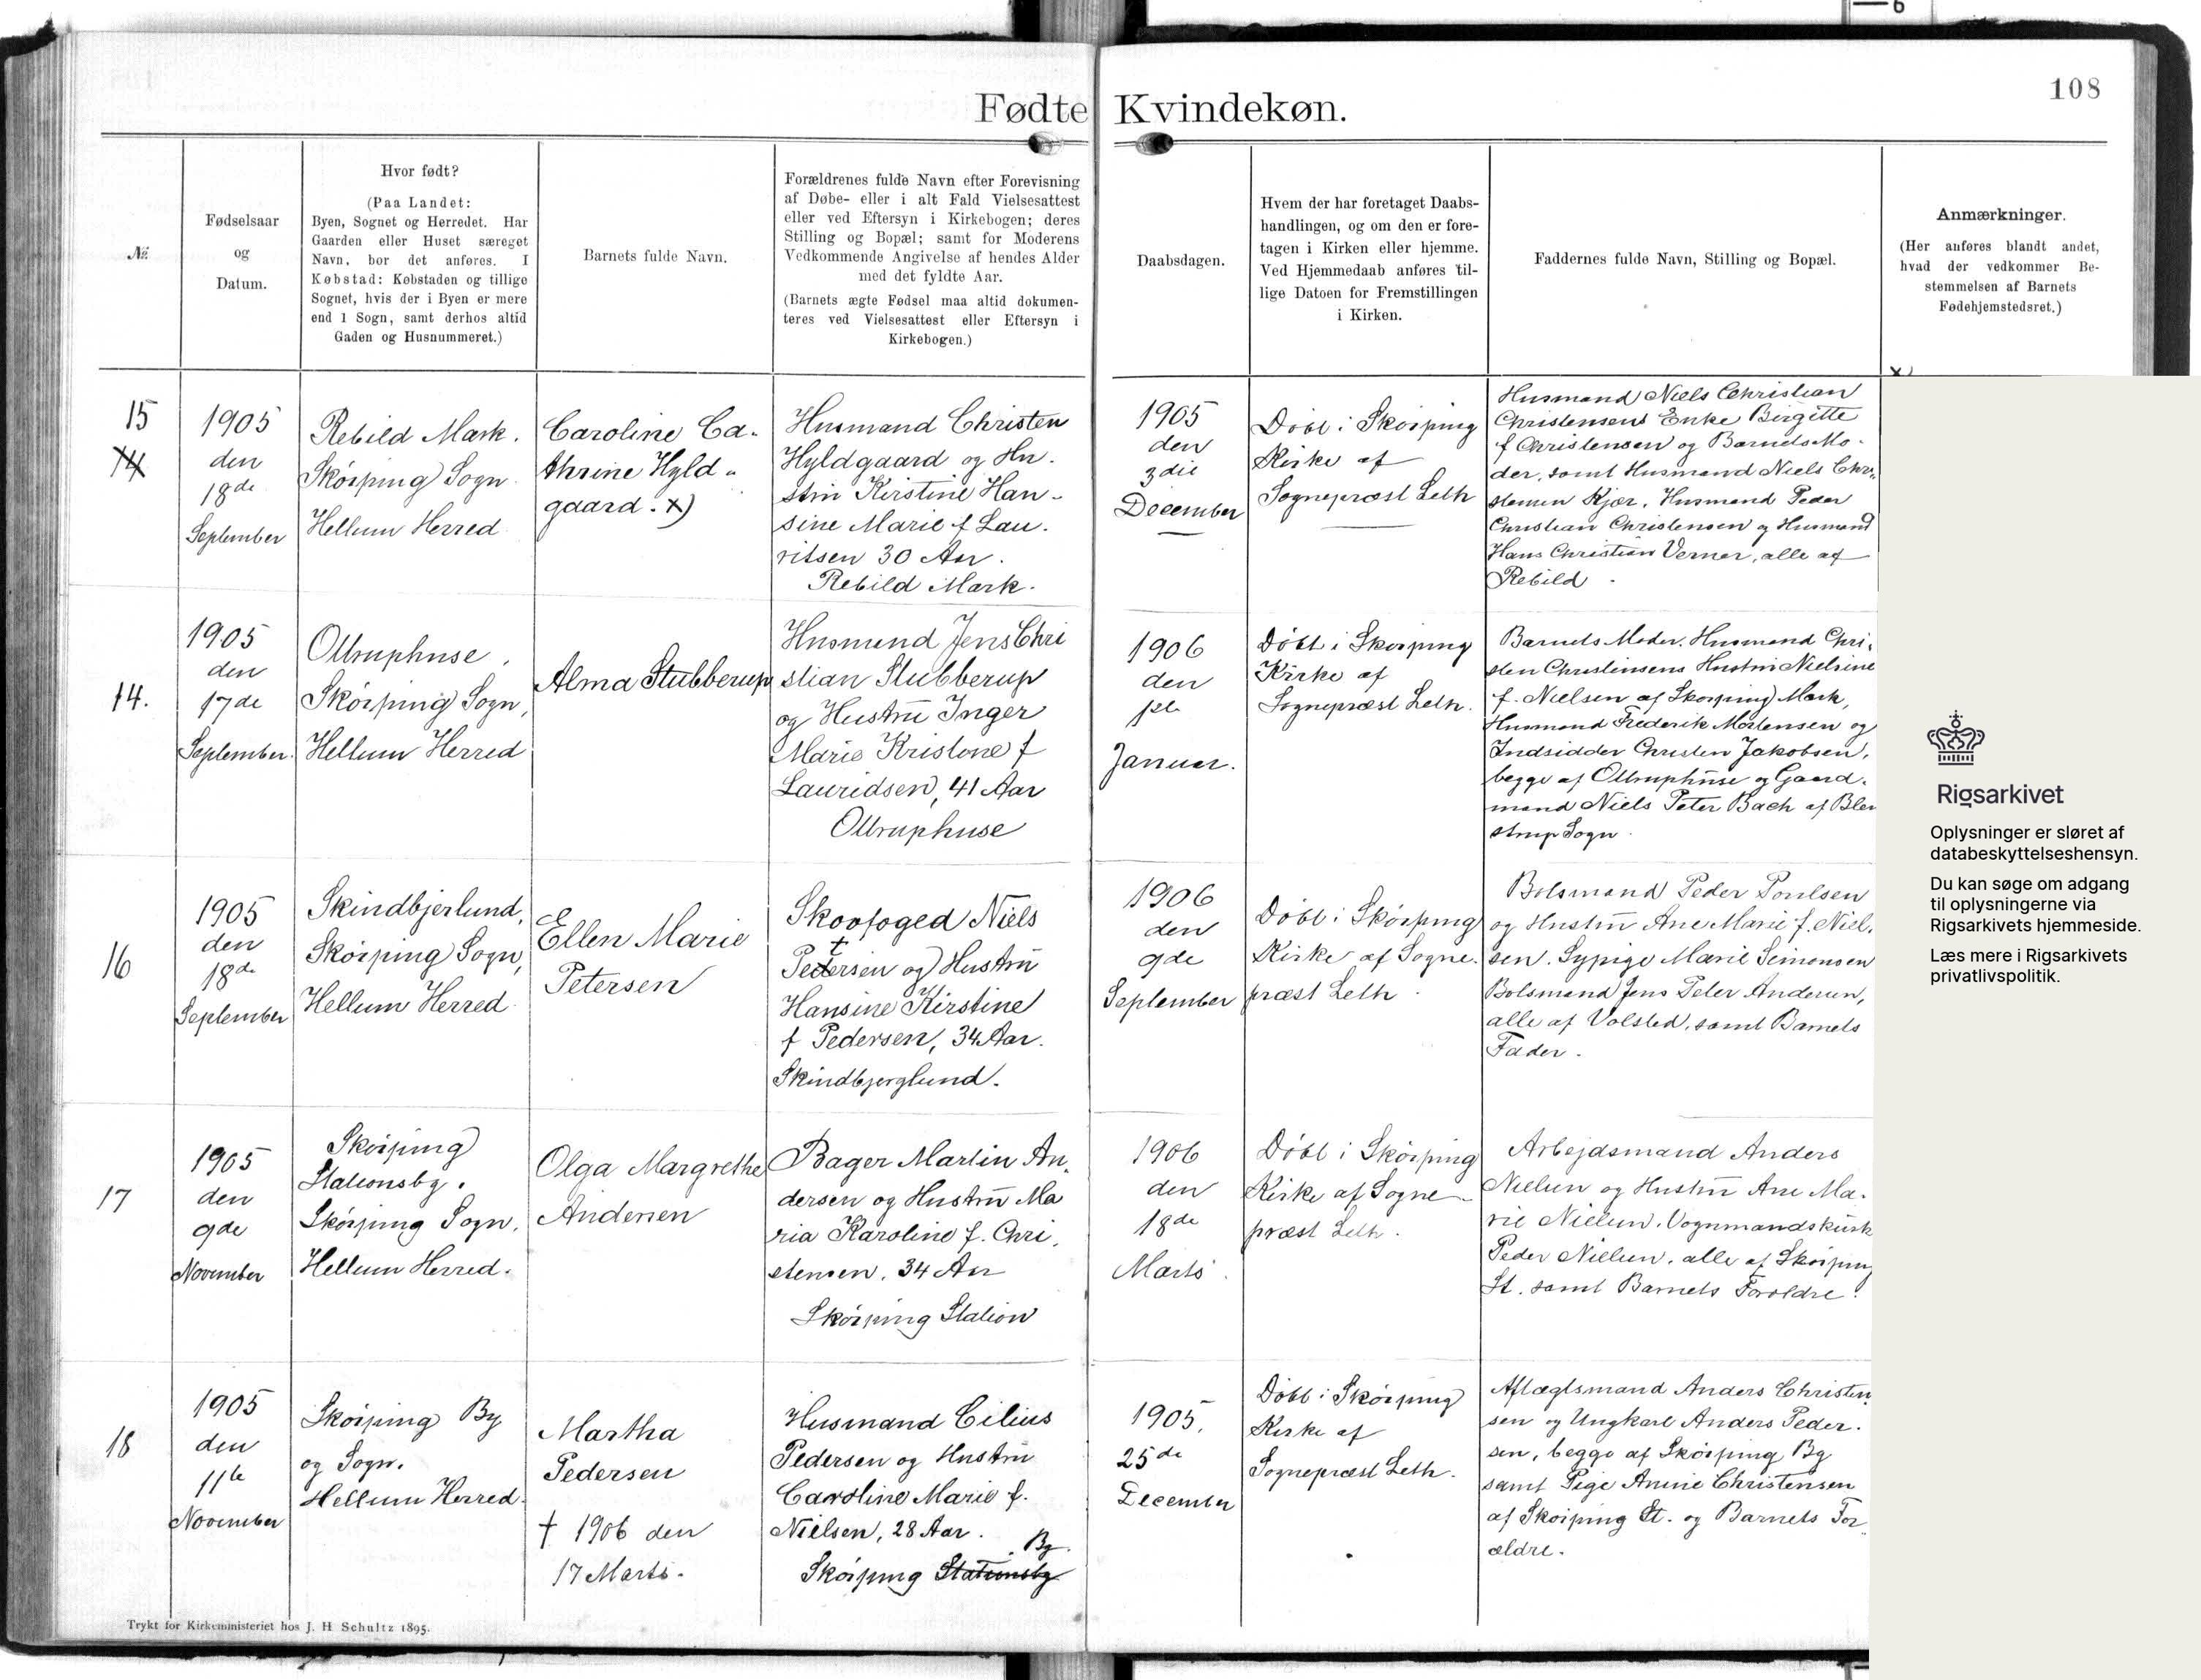 6
108
Fødte Kvindekøn.
№
Fødselsaar
og
Datum.
Hvor født?
(Paa Landet:
Byen, Sognet og Herredet. Har
Gaarden eller Huset særeget
Navn, bør det anføres. I
Købstad: Købstaden og tillige
Sognet, hvis der i Byen er mere
end 1 Sogn, samt derhos altid
Gaden og Husnummeret.)
Barnets fulde Navn.
Forældrenes fulde Navn efter Forevisning
af Døbe- eller i alt Fald Vielsesattest
eller ved Eftersyn i Kirkebogen; deres
Stilling og Bopæl; samt for Moderens
Vedkommende Angivelse af hendes Alder
med det fyldte Aar.
(Barnets ægte Fødsel maa altid dokumen-
teres ved Vielsesattest eller Eftersyn i
Kirkebogen.)
Daabsdagen.
Hvem der har foretaget Daabs-
handlingen, og om den er fore-
tagen i Kirken eller hjemme.
Ved Hjemmedaab anføres til-
lige Datoen for Fremstillingen
i Kirken.
Faddernes fulde Navn, Stilling og Bopæl.
Anmærkninger.
(Her anføres blandt andet,
hvad der vedkommer Be-
stemmelsen af Barnets
Fødehjemstedsret.)
x)
15
14
1905
den
18de
September
Rebild Mark.
Skørping Sogn
Hellum Herred
Caroline Ca-
thrine Hyld-
gaard. x)
Husmand Christen
Hyldgaard og Hu-
stru Kirstine Han-
sine Marie f Lau-
ritsen 30 Aar.
Rebild Mark.
1905
den
3die
December
Døbt i Skørping
Kirke af
Sognepræst Leth
Husmand Niels Christian
Christensens Enke Birgitte
f Christensen og Barnets Mo-
der, samt Husmand Niels Chri-
stensen Kjær, Husmand Peder
Christian Christensen og Husmand
Hans Christian Verner, alle af
Rebild.
14.
1905
den
17de
September.
Ottruphuse,
Skørping Sogn,
Hellum Herred
Alma Stubberup
Husmand Jens Chri
stian Stubberup
og Hustru Inger
Marie Kristone f
Lauridsen, 41 Aar
Ottruphuse
1906
den
1ste
Januar.
Døbt i Skørping
Kirke af
Sognepræst Leth.
Barnets Moder. Husmand Chri-
sten Christensens Hustru Nielsine
f. Nielsen af Skørping Mark,
Husmand Frederik Mortensen og
Indsidder Christen Jakobsen,
begge af Ottruphuse og Gaard-
mand Niels Peter Bach af Blen
strup Sogn.
16
1905
den
18de
September
Skindbjerlund,
Skørping Sogn,
Hellum Herred
Ellen Marie
Petersen
Skovfoged Niels
t
Petersen og Hustru
Hansine Kirstine
f Pedersen, 34 Aar.
Skindbjerglund.
1906
den
9de
September
Døbt i Skørping
Kirke af Sogne-
præst Leth.
Bolsmand Peder Poulsen
og Hustru Ane Marie f. Niel-
sen. Sypige Marie Simonsen
Bolsmand Jens Peter Andersen,
alle af Volsted, samt Barnets
Fader.
17
1905
den
9de
November
Skørping
Stationsby.
Skørping Sogn,
Hellum Herred.
Olga Margrethe
Andersen
Bager Martin An-
dersen og Hustru Ma
ria Karoline f. Chri-
stensen, 34 Aar
Skørping Station
1906
den
18de
Marts.
Døbt i Skørping
Kirke af Sogne-
præst Leth.
Arbejdsmand Anders
Nielsen og Hustru Ane Ma-
rie Nielsen. Vognmandskusk
Peder Nielsen, alle af Skørping
St. samt Barnets Forældre.
18
1905
den
11te
November
Skørping By
og Sogn.
Hellum Herred.
Martha
Pedersen
† 1906 den
17 Marts.
Husmand Cilius
Pedersen og Hustru
Caroline Marie f.
Nielsen, 28 Aar.
By.
Skørping Stationsby
1905.
25de
December
Døbt i Skørping
Kirke af
Sognepræst Leth.
Aftægtsmand Anders Christen-
sen og Ungkarl Anders Peder-
sen, begge af Skørping By
samt Pige Anine Christensen
af Skørping St. og Barnets For-
ældre.
Trykt for Kirkeministeriet hos J. H Schultz 1895.
Rigsarkivet
Oplysninger er sløret af
databeskyttelseshensyn.
Du kan søge om adgang
til oplysningerne via
Rigsarkivets hjemmeside.
Læs mere i Rigsarkivets
privatlivspolitik.